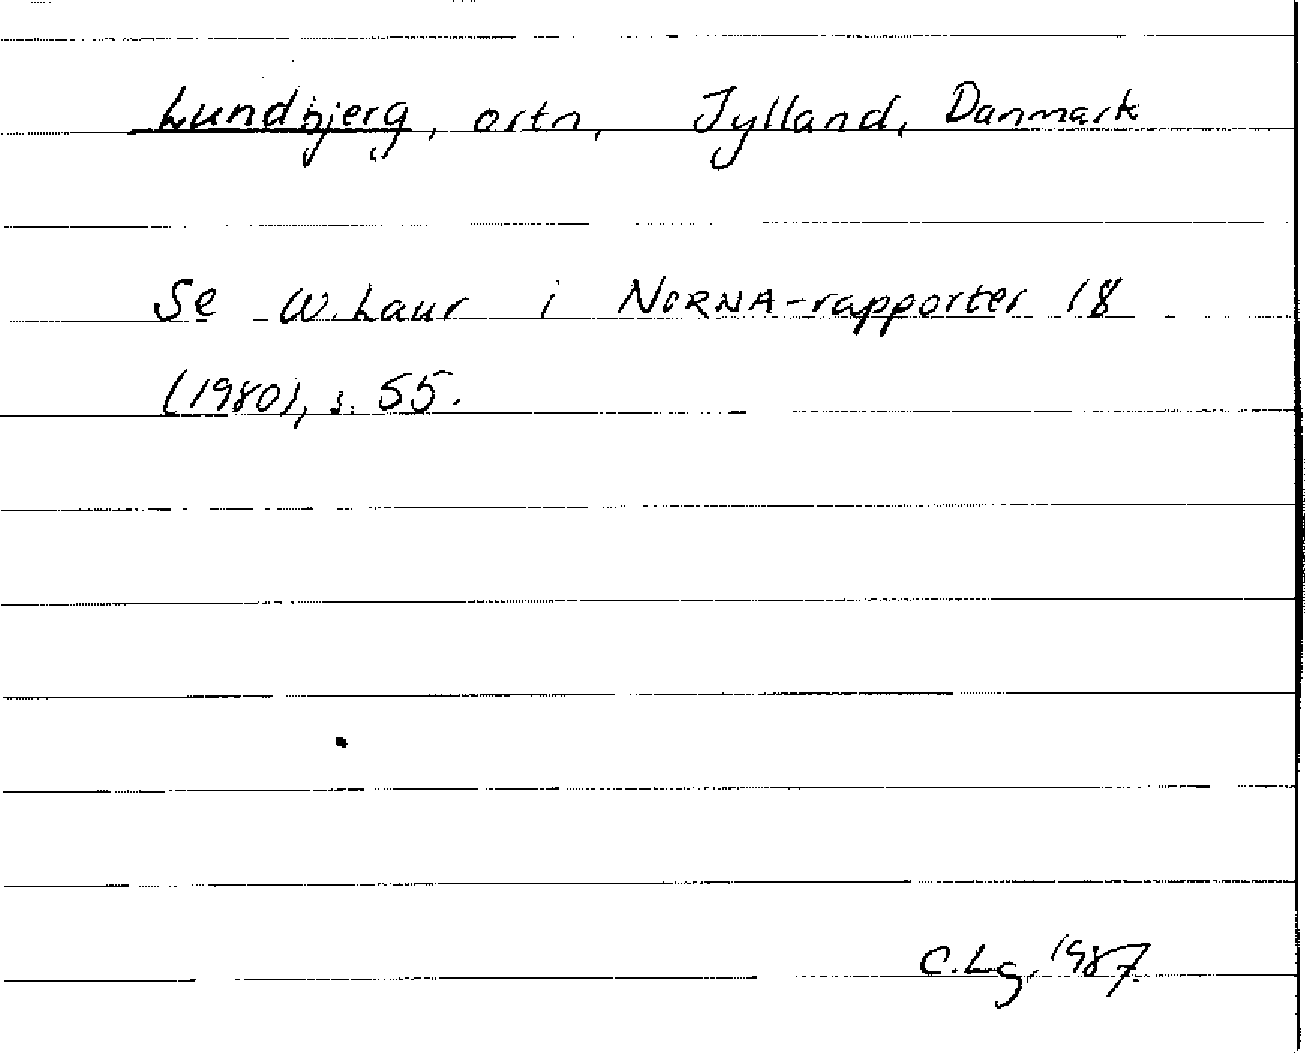 Lundbjerg, ortn, Jylland, Danmark
Se W. Laur i NORNA-rapporter 18
(1980), s. 55.
C. Lg, 1987.